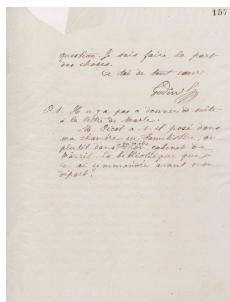 157
question. Je sais faire la part
des choses.
à toi de tout cœur
Godin
P.S. Il n'y a pas à donner de suite
à la lettre de Marle.
M. Picot a-t-il posé dans
ma chambre au familistère, ou
plutôt dans mon cabinet de
travail, la bibliothèque que je
lui ai commandée avant mon
départ?